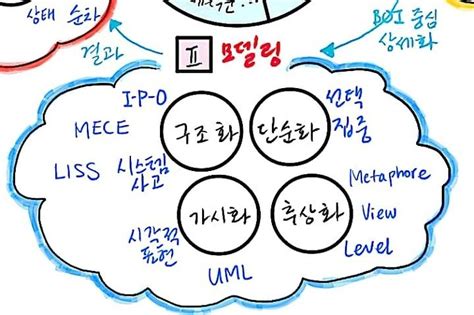 상태 순차
결과
II 모델링
BOI 중심
상세화
I-P-O
MECE
LISS
시스템김
사고
구조화
단순화
선택
집중
가시화
추상화
시각적
표현
UML
Metaphore
View
Level